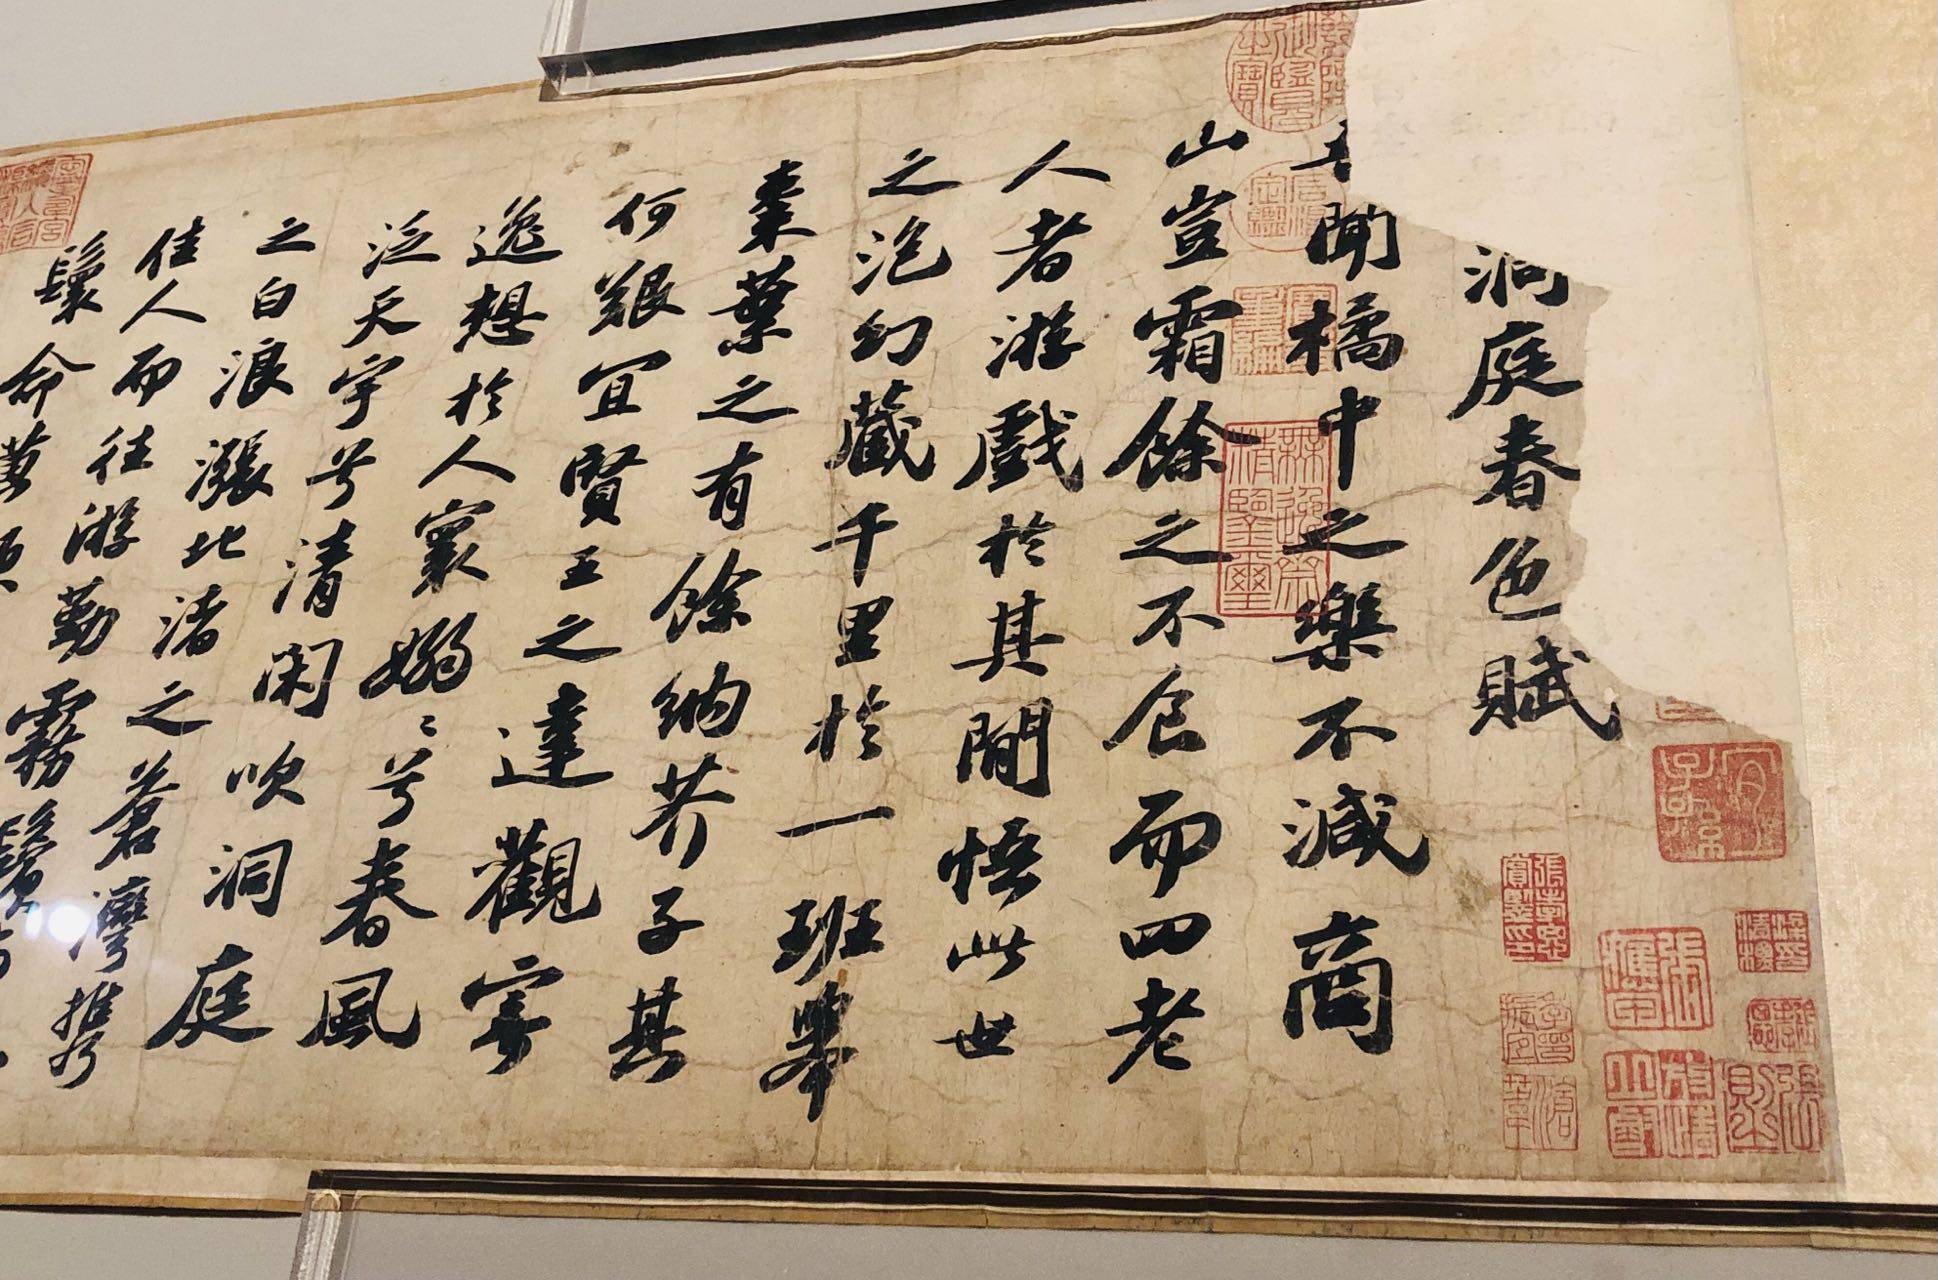 洞庭春色賦
吾聞橘中之樂不減商
山豈霜餘之不食而四老
人者游戲於其間悟此世
之泡幻藏千里於一班舉
棗葉之有餘納芥子其
何艱宜賢王之達觀寄
逸想於人寰嫋〻兮春風
泛天宇兮清閑吹洞庭
之白浪漲北渚之蒼灣攜
佳人而往游勤霧
鬟命黃頭